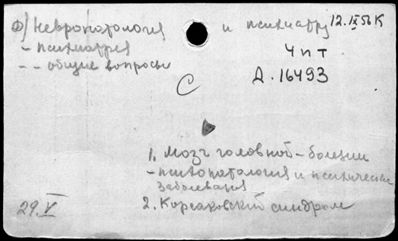 Ф) Невропатология и психиатр 12.IX 56 К
- психиатрия
- - общие вопросы
4 п т
Д. 16493
С
1. Мозг головной - болезни
- психопатология и психические заболевания
2. Корсаковский синдром
29.V